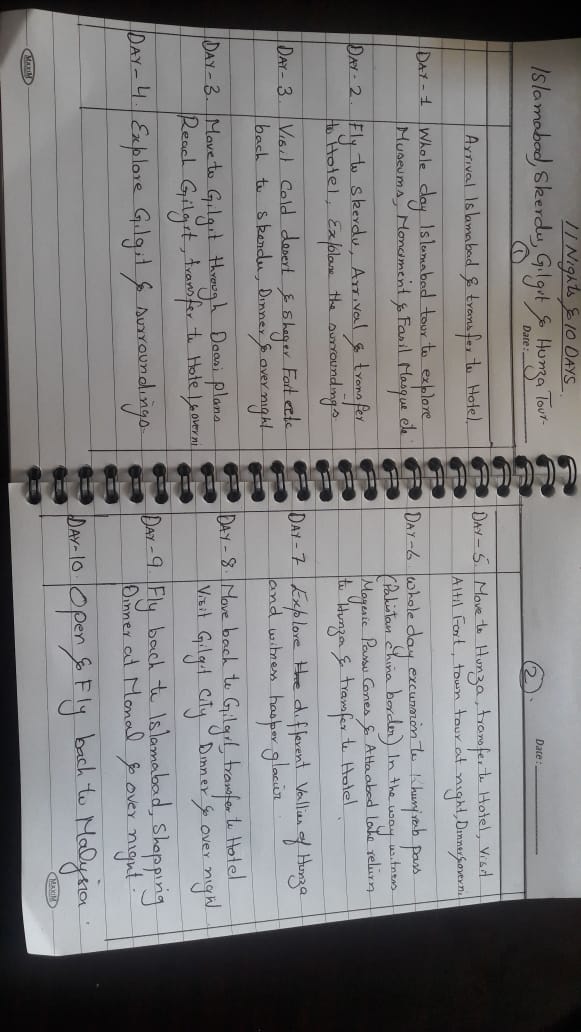 11 Nights & 10 DAYS.
Islamabad, Skerdu, Gilgit & Hunza Tour-
① Date:
Arrival Islamabad & transfer to Hotel,
DAY-1 Whole day Islamabad tour to explore
Museums, Monument & Fasil Masque etc.
DAY-2. Fly to Skerdu, Arrival & transfer
to Hotel, Explore the surroundings
DAY-3 Visit Cold desert & Sheger Fort eetc
back to Skerdu, Dinner & over night
DAY-3. Move to Gilgit through Doasi plans
Reach Gilgit, transfer to Hotel & overni
DAY-4. Explore Gilgit & surroundings.
MAXIM
② Date:
DAY-5. Move to Hunza, transfer to Hotel, Visit
Altil Fort, town tour at night, Dinner & overni
DAY-6. Whole day excursion to Khunjrab pass
(Pakistan China border) In the way witness
Magesic Passu Cones & Attaabad lake return
to Hunza & transfer to Hotel.
DAY-7 Explore the different Vallies of Hunza
and witness hasper glacier
DAY-8 Move back to Gilgit, transfer to Hotel
Visit Gilgit City Dinner & over night
DAY-9. Fly back to Islamabad, Shopping
Dinner at Monal & over night.
DAY-10. Open & Fly back to Malysia.
MAXIM